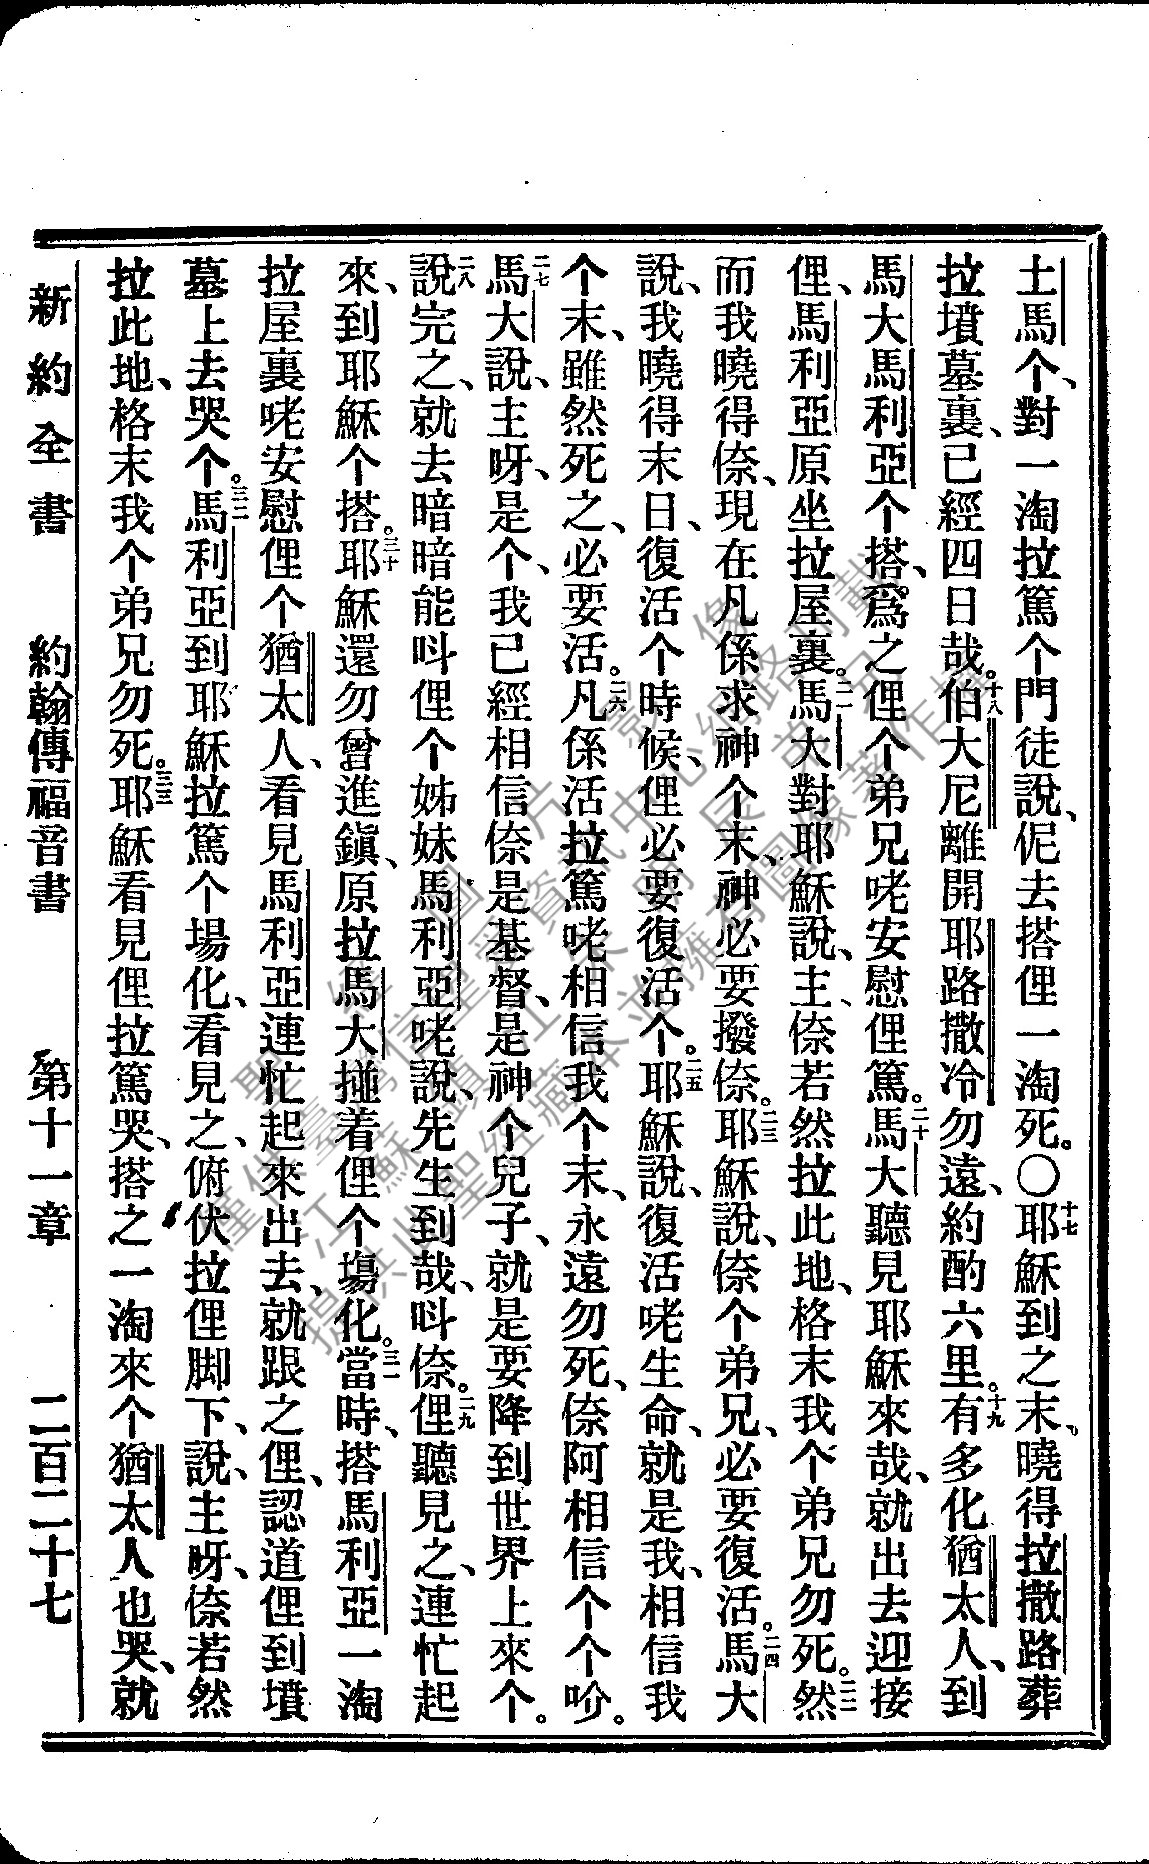 土馬个、對一淘拉篤个門徒說、伲去搭俚一淘死。〇十七耶穌到之末、曉得拉撒路葬
拉墳墓裏、已經四日哉。十八伯大尼離開耶路撒冷勿遠、約酌六里。十九有多化猶太人、到
馬大馬利亞个搭、爲之俚个弟兄咾安慰俚篤。二十馬大聽見耶穌來哉、就出去迎接
俚、馬利亞原坐拉屋裏。二一馬大對耶穌說、主、倷若然拉此地、格末我个弟兄勿死。二二然
而我曉得倷、現在凡係求神个末、神必要撥倷。二三耶穌說、倷个弟兄、必要復活。二四馬大
說、我曉得末日、復活个時候、俚必要復活个。二五耶穌說、復活咾生命、就是我、相信我
个末、雖然死之、必要活。二六凡係活拉篤咾相信我个末、永遠勿死、倷阿相信个个吤。
二七馬大說、主呀、是个、我已經相信倷是基督、是神个兒子、就是要降到世界上來个。
二八說完之、就去暗暗能呌俚个姊妹馬利亞咾說、先生到哉、呌倷。二九俚聽見之、連忙起
來、到耶穌个搭。三十耶穌還勿曾進鎭、原拉馬大掽着俚个塲化。三一當時、搭馬利亞一淘
拉屋裏咾安慰俚个猶太人、看見馬利亞連忙起來出去、就跟之俚、認道俚到墳
墓上去哭个。三二馬利亞到耶穌拉篤个場化、看見之、俯伏拉俚脚下、說、主呀、倷若然
拉此地、格末我个弟兄勿死。三三耶穌看見俚拉篤哭、搭之一淘來个猶太人也哭、就
新約全書　約翰傳福音書　第十一章　二百二十七
聖經圖片影像
僅供臺灣信望愛資訊中心網路刊載
江蘇鎮江朱明民弟兄
提供此聖經藏本並擁有圖像著作權